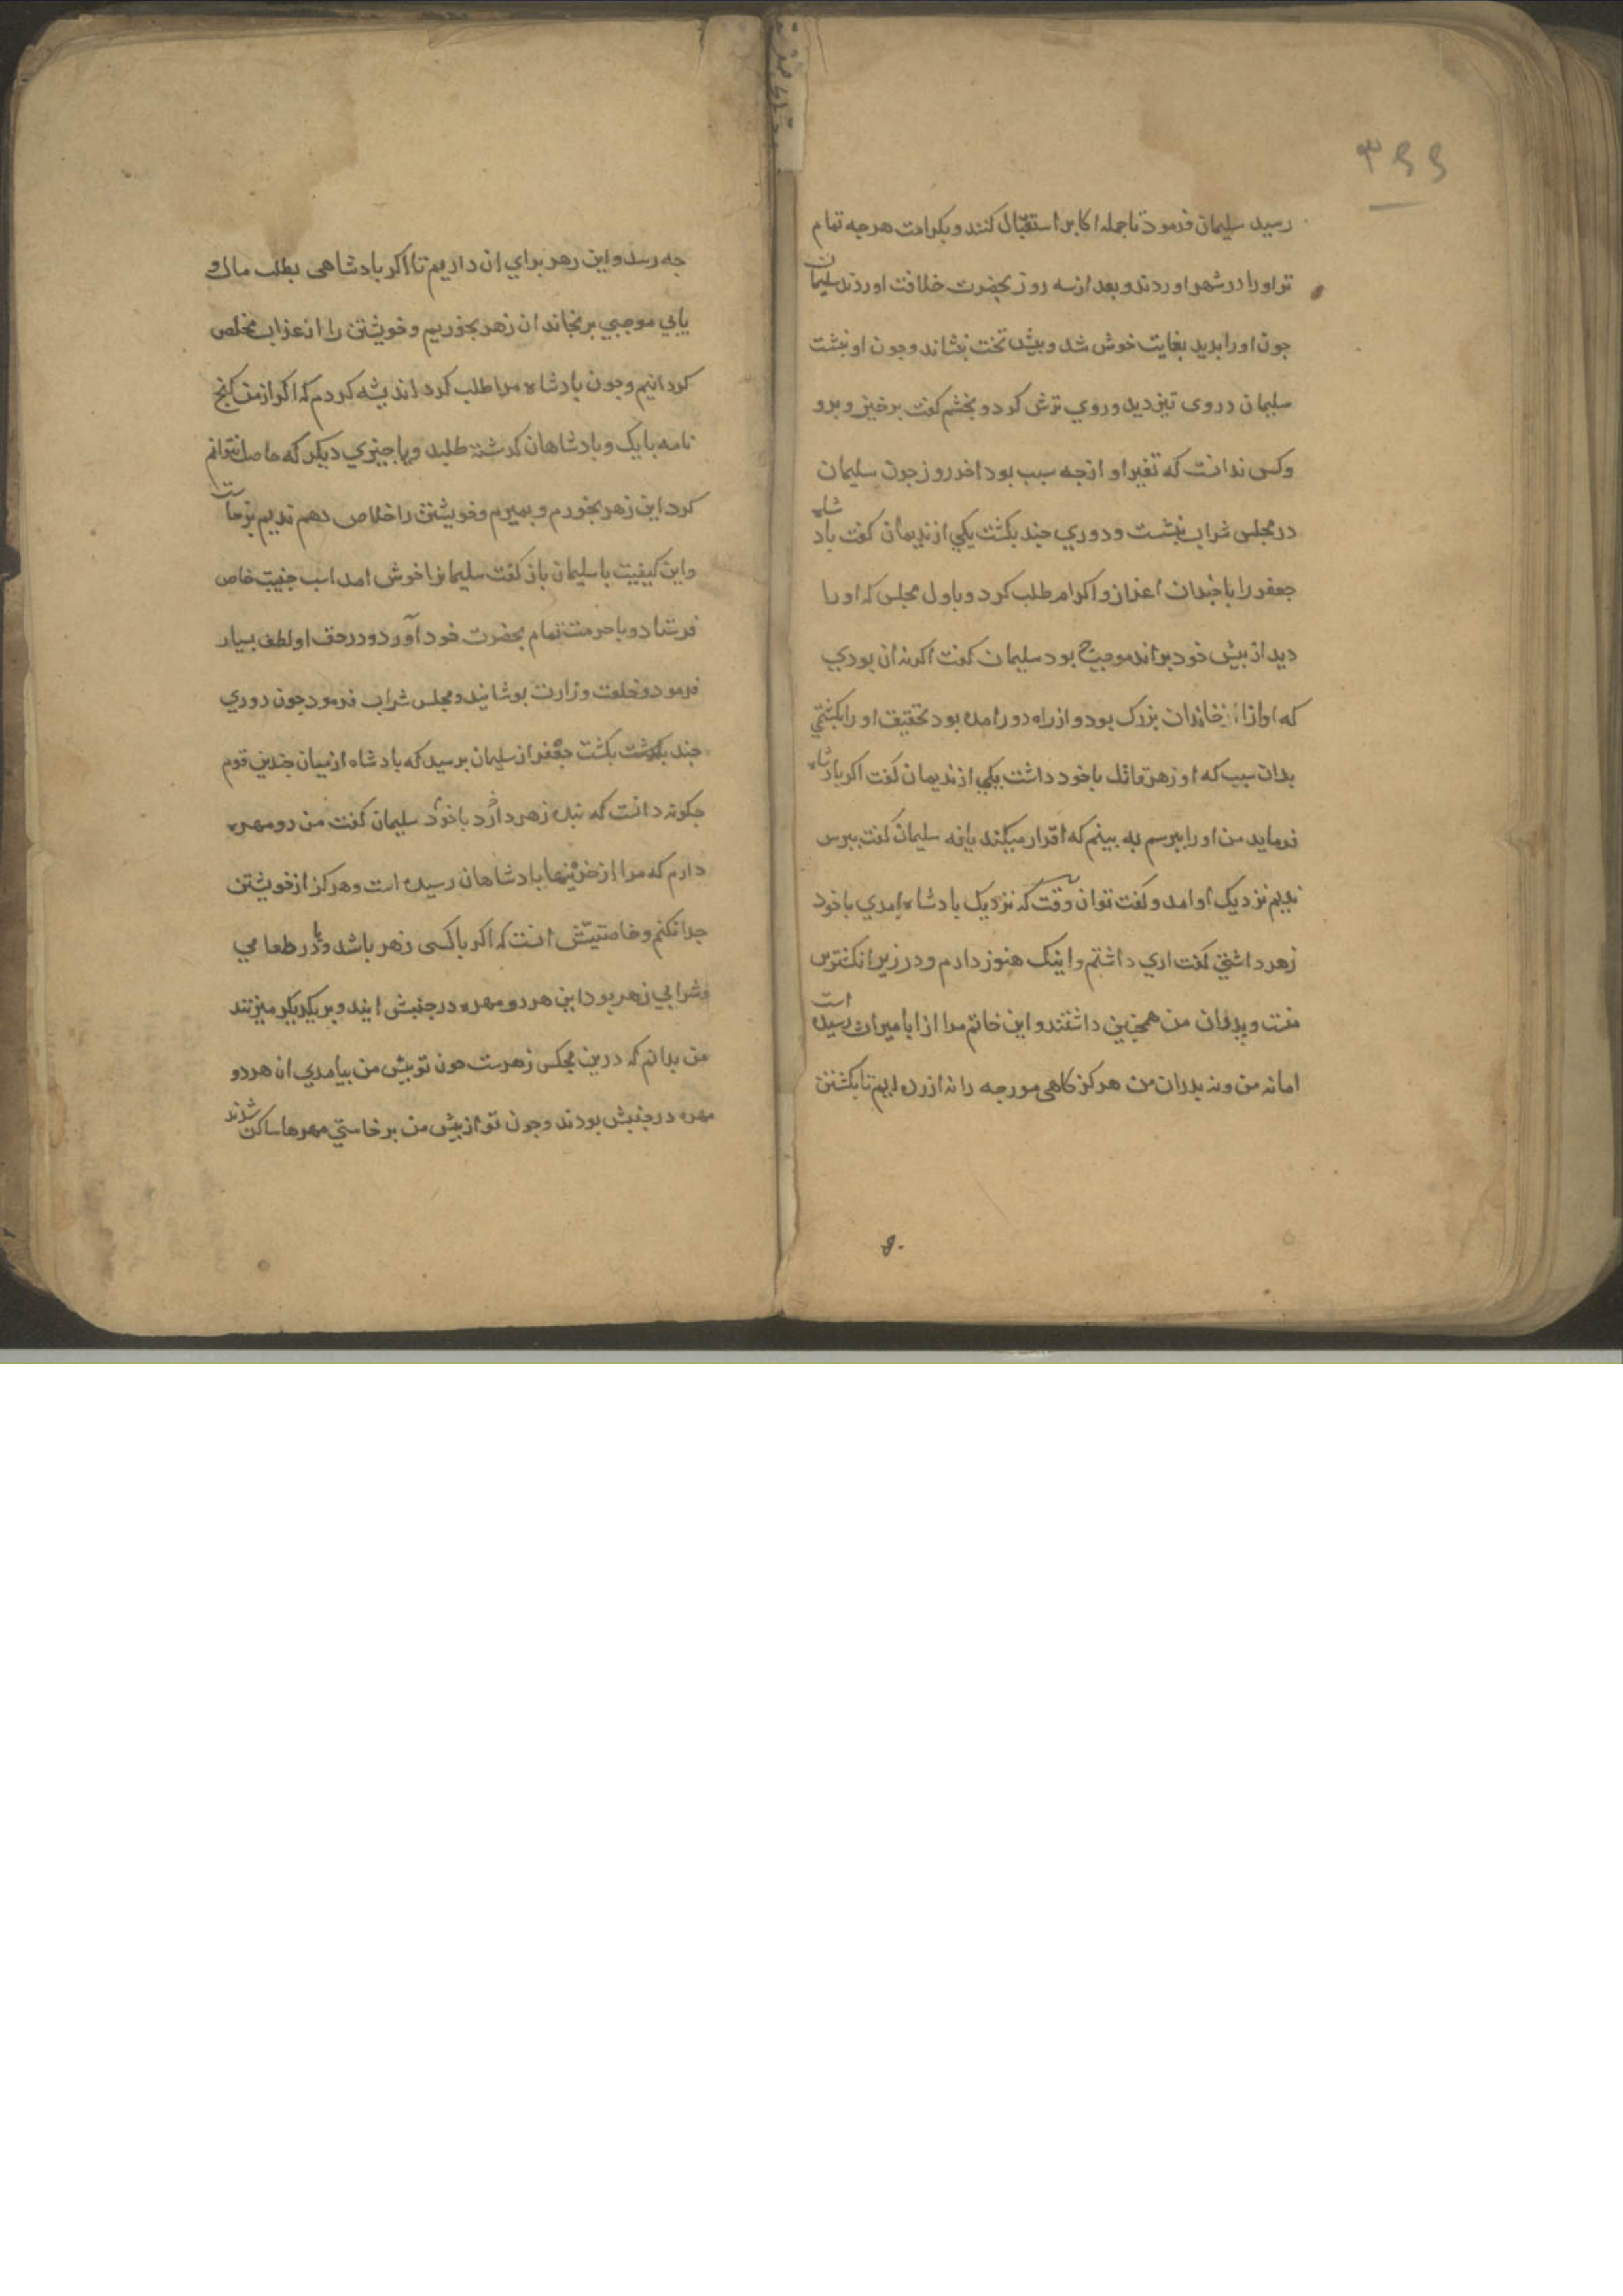 ۳۹۹
رسید سلیمان فرمود تا جمله اکابر استقبال کنند و بکرامت هرچه تمام
تر او را در شهر اوردند و بعد از سه روز بحضرت خلافت اوردند سلیمان
جون اورا بدید بغایت خوش شد و بیش تخت بنشاند و جون او بنشت
سلیمان در وی تیز دید و روی ترش کرد و بخشم کفت برخیز و برو
وکس ندانست که تغیر او از جه سبب بود اخر روز جون سلیمان
در مجلس شراب بنشست و دوری جند بکشت یکی از ندیمان کفت بادشاه
جعفر را با جندان اعزاز و اکرام طلب کرد و باول مجلس که او را
دید از بیش خود براند موجب بود سلیمان کفت اکر نه ان بودی
که او از خاندان بزرک بود و از راه دور امده بود بتحقیق او را بکشتی
بدان سبب که او زهر قاتل با خود داشت یکی از ندیمان کفت اکر بادشاه
فرماید من او را ببرسم به بینم که اقرار میکند یا نه سلیمان کفت ببرس
ندیم نزدیک او امد و کفت تو ان وقت که نزدیک بادشاه امدی با خود
زهر داشتی کفت اری داشتم و اینک هنوز دارم و در زیر انکشترین
منست و بدران من همجنین داشتند و این خاتم مرا از ابا میراث رسیده است
اما نه من و نه بدران من هرکز کاهی مورجه را نه ازرده ایم تا بکشتن
جه رسد و این زهر برای ان داریم تا اکر بادشاهی بطلب مال و
یابی موجبی برنجاند ان زهر بخوریم و خویشتن را از عذاب مخلص
کردانیم و جون بادشاه مرا طلب کرد اندیشه کردم که اکر از من کنج
نامه بابک و بادشاهان کدشته طلبد و یا جیزی دیکر که حاصل نتوانم
کرد این زهر بخورم و بمیرم و خویشتن را خلاص دهم ندیم برخاست
و این کیفیت با سلیمان باز کفت سلیمانرا خوش امد اسب جنیبت خاص
فرستاد و با حرمت تمام بحضرت خود آورد و در حق او لطف بسیار
فرمود و خلعت وزارت بوشانید و مجلس شراب فرمود جون دوری
جند بکشت جعفر از سلیمان برسید که بادشاه از میان جندین قوم
جکونه دانست که بنده زهر دارد با خود سلیمان کفت من دو مهره
دارم که مرا از خزینها بادشاهان رسیده است و هرکز از خویشتن
جدا نکنم و خاصیتش انست که اکر با کسی زهر باشد و یا در طعامی
و شرابی زهر بود این هر دو مهره در جنبش ایند و بر یکدیکر میزنند
من بدانم که درین مجلس زهرست جون تو بیش من بیامدی ان هر دو
مهره در جنبش بودند و جون تو از بیش من برخاستی مهرها ساکن شدند